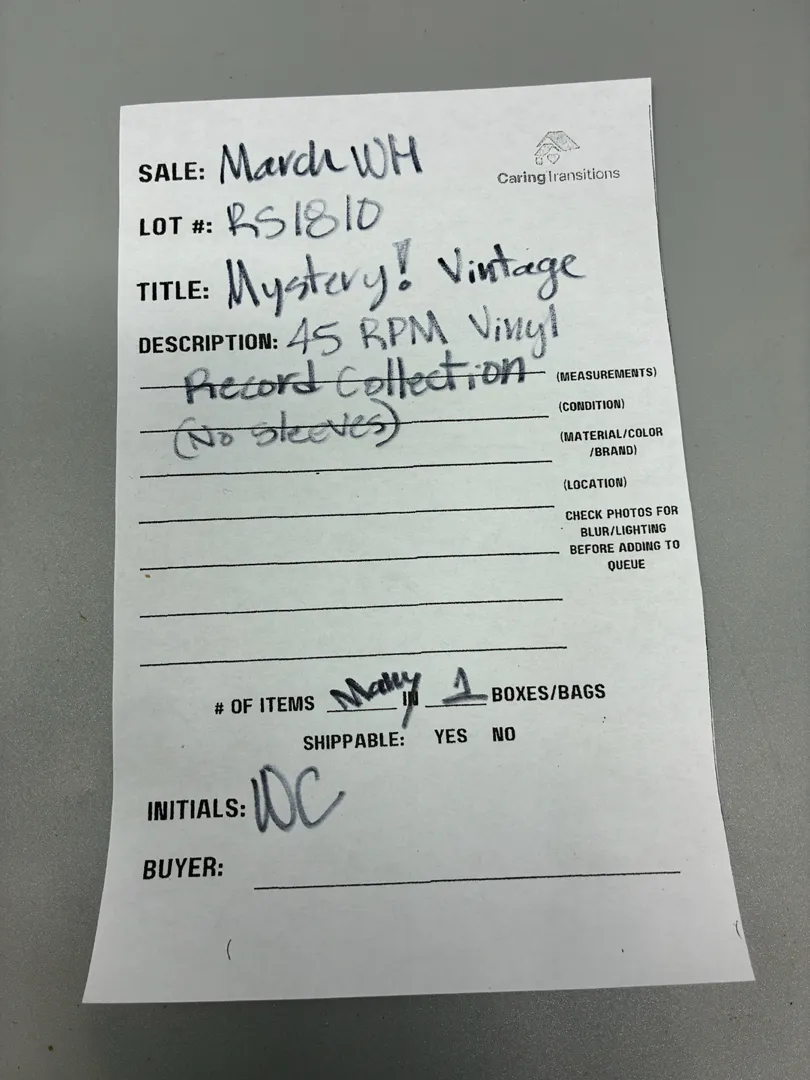 SALE: March WH
CaringTransitions
LOT #: RS1810
TITLE: Mystery! Vintage
DESCRIPTION: 45 RPM Vinyl
Record Collection
(MEASUREMENTS)
(No Sleeves)
(CONDITION)
(MATERIAL/COLOR
/BRAND)
(LOCATION)
CHECK PHOTOS FOR
BLUR/LIGHTING
BEFORE ADDING TO
QUEUE
# OF ITEMS Many IN 1 BOXES/BAGS
SHIPPABLE: YES NO
INITIALS: WC
BUYER: